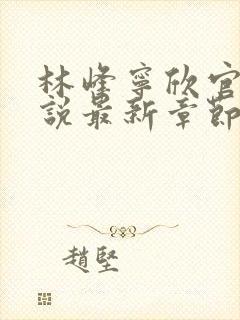 林峰寧欣官
說最新章節
趙堅